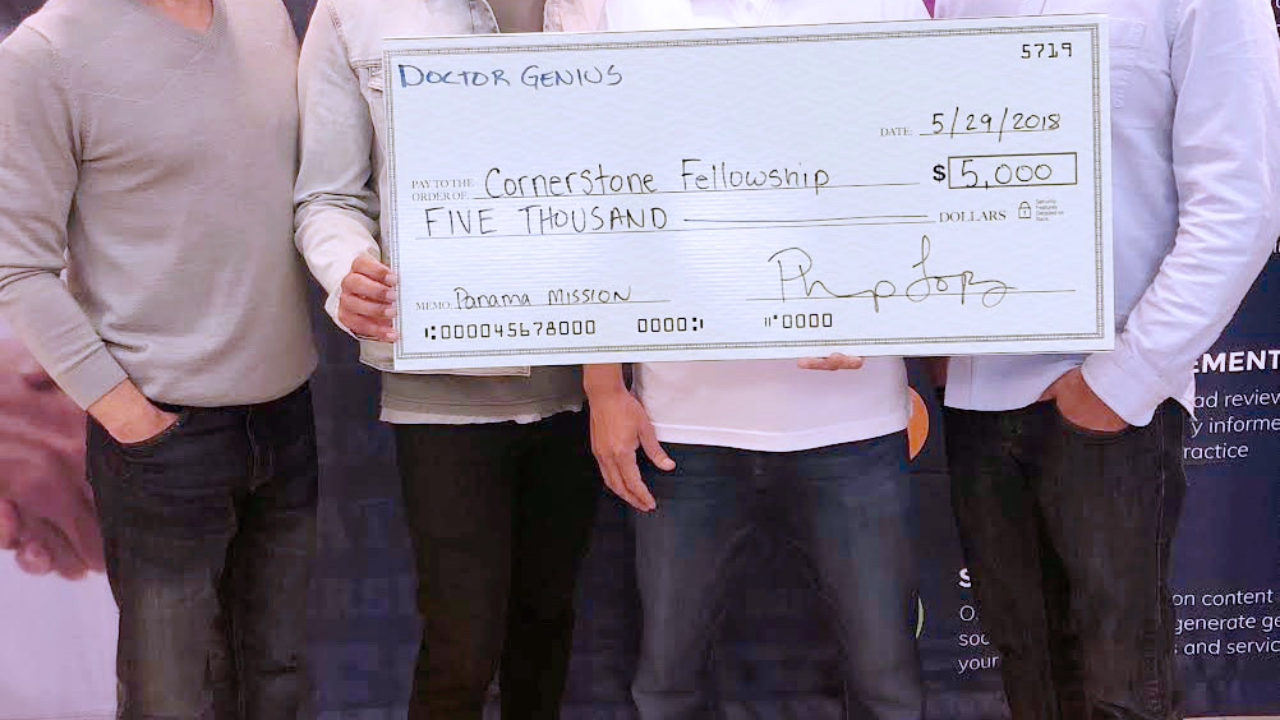 5719
DOCTOR GENIUS
DATE: 5/29/2018
PAY TO THE
ORDER OF: Cornerstone Fellowship $ 5,000
FIVE THOUSAND DOLLARS
Security
Features
Details on
Back.
MEMO: Panama MISSION
⑆000045678000 0000⑆ ⑈0000
EMENT
ad review
y informe
ractice
S
O
soc
your
on content
generate ge
and servic